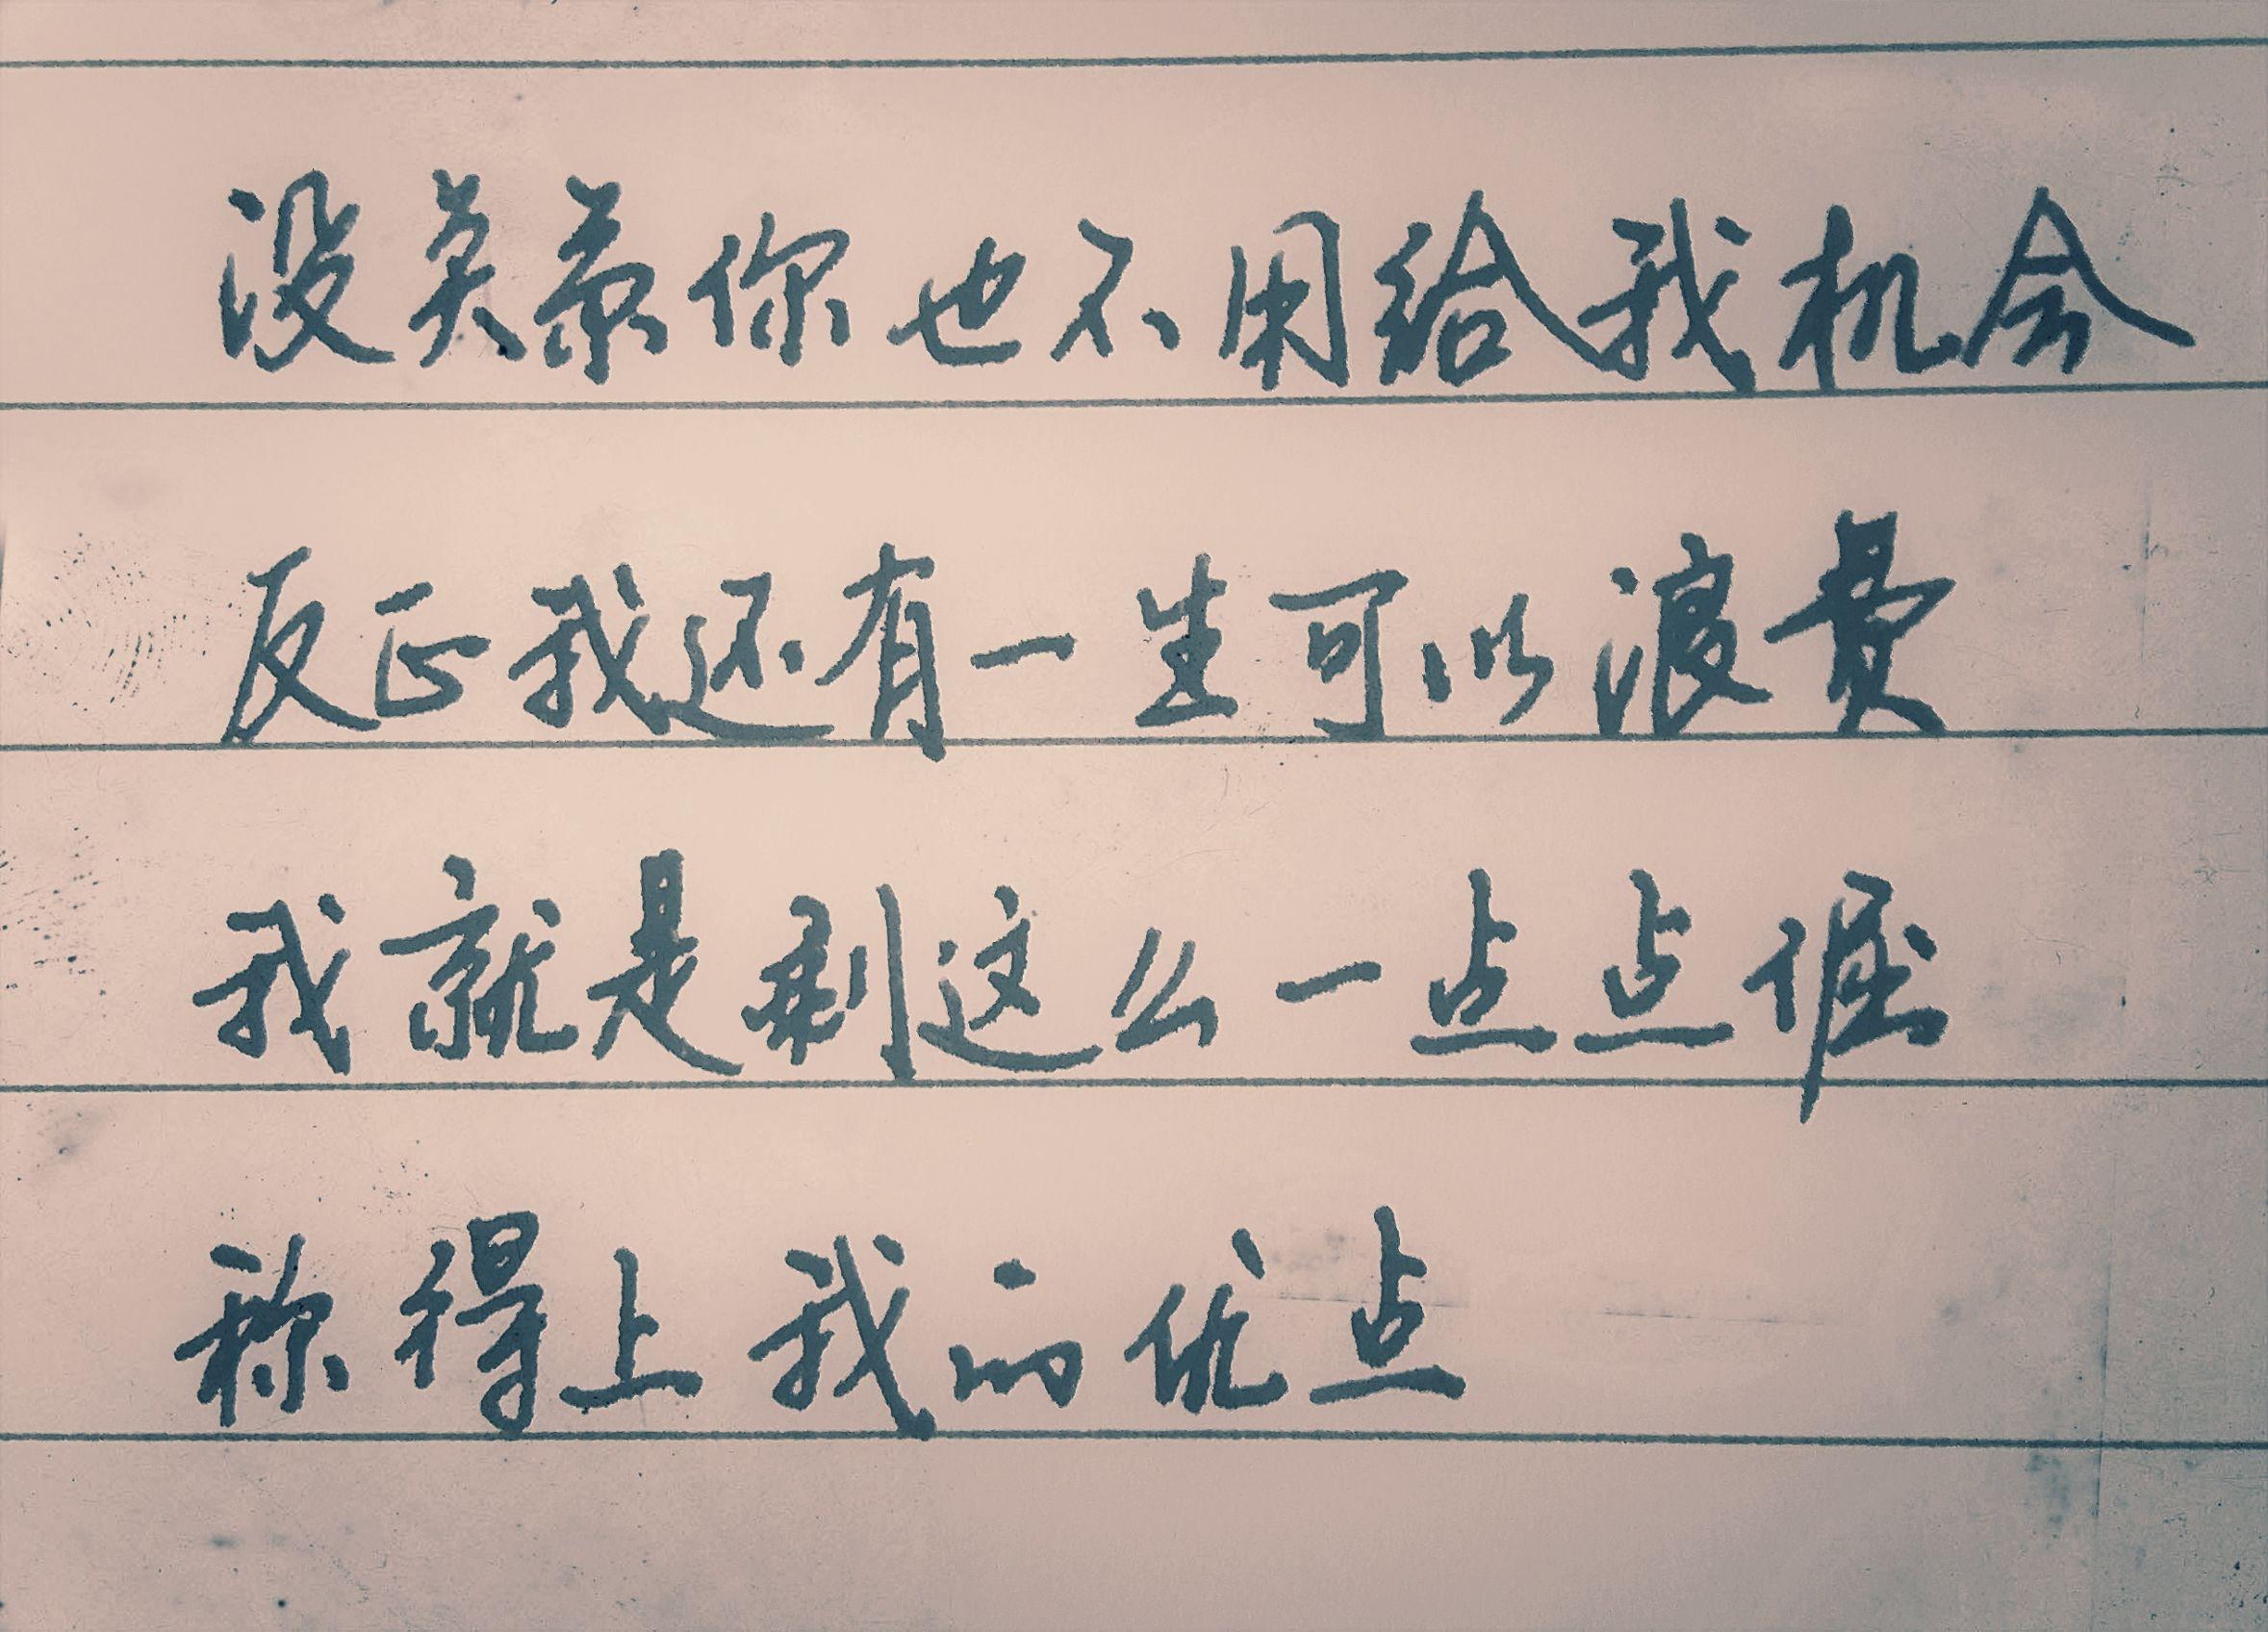 没关系你也不用给我机会
反正我还有一生可以浪费
我就是剩这么一点点倔
称得上我的优点